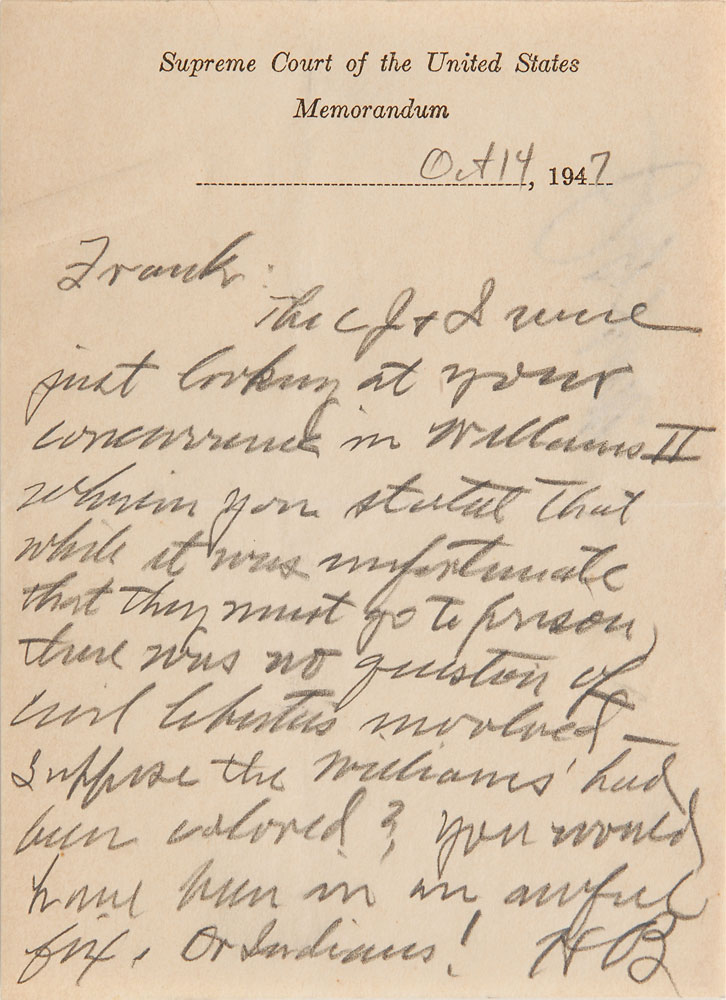 Supreme Court of the United States
Memorandum
Oct 14, 1947
Frank:
The CJ & I were
just looking at your
concurrence in Williams II
wherein you stated that
while it was unfortunate
that they must go to prison,
there was no question of
civil liberties involved —
Suppose the Williams' had
been colored? You would
have been in an awful
fix. Or Indians! HB